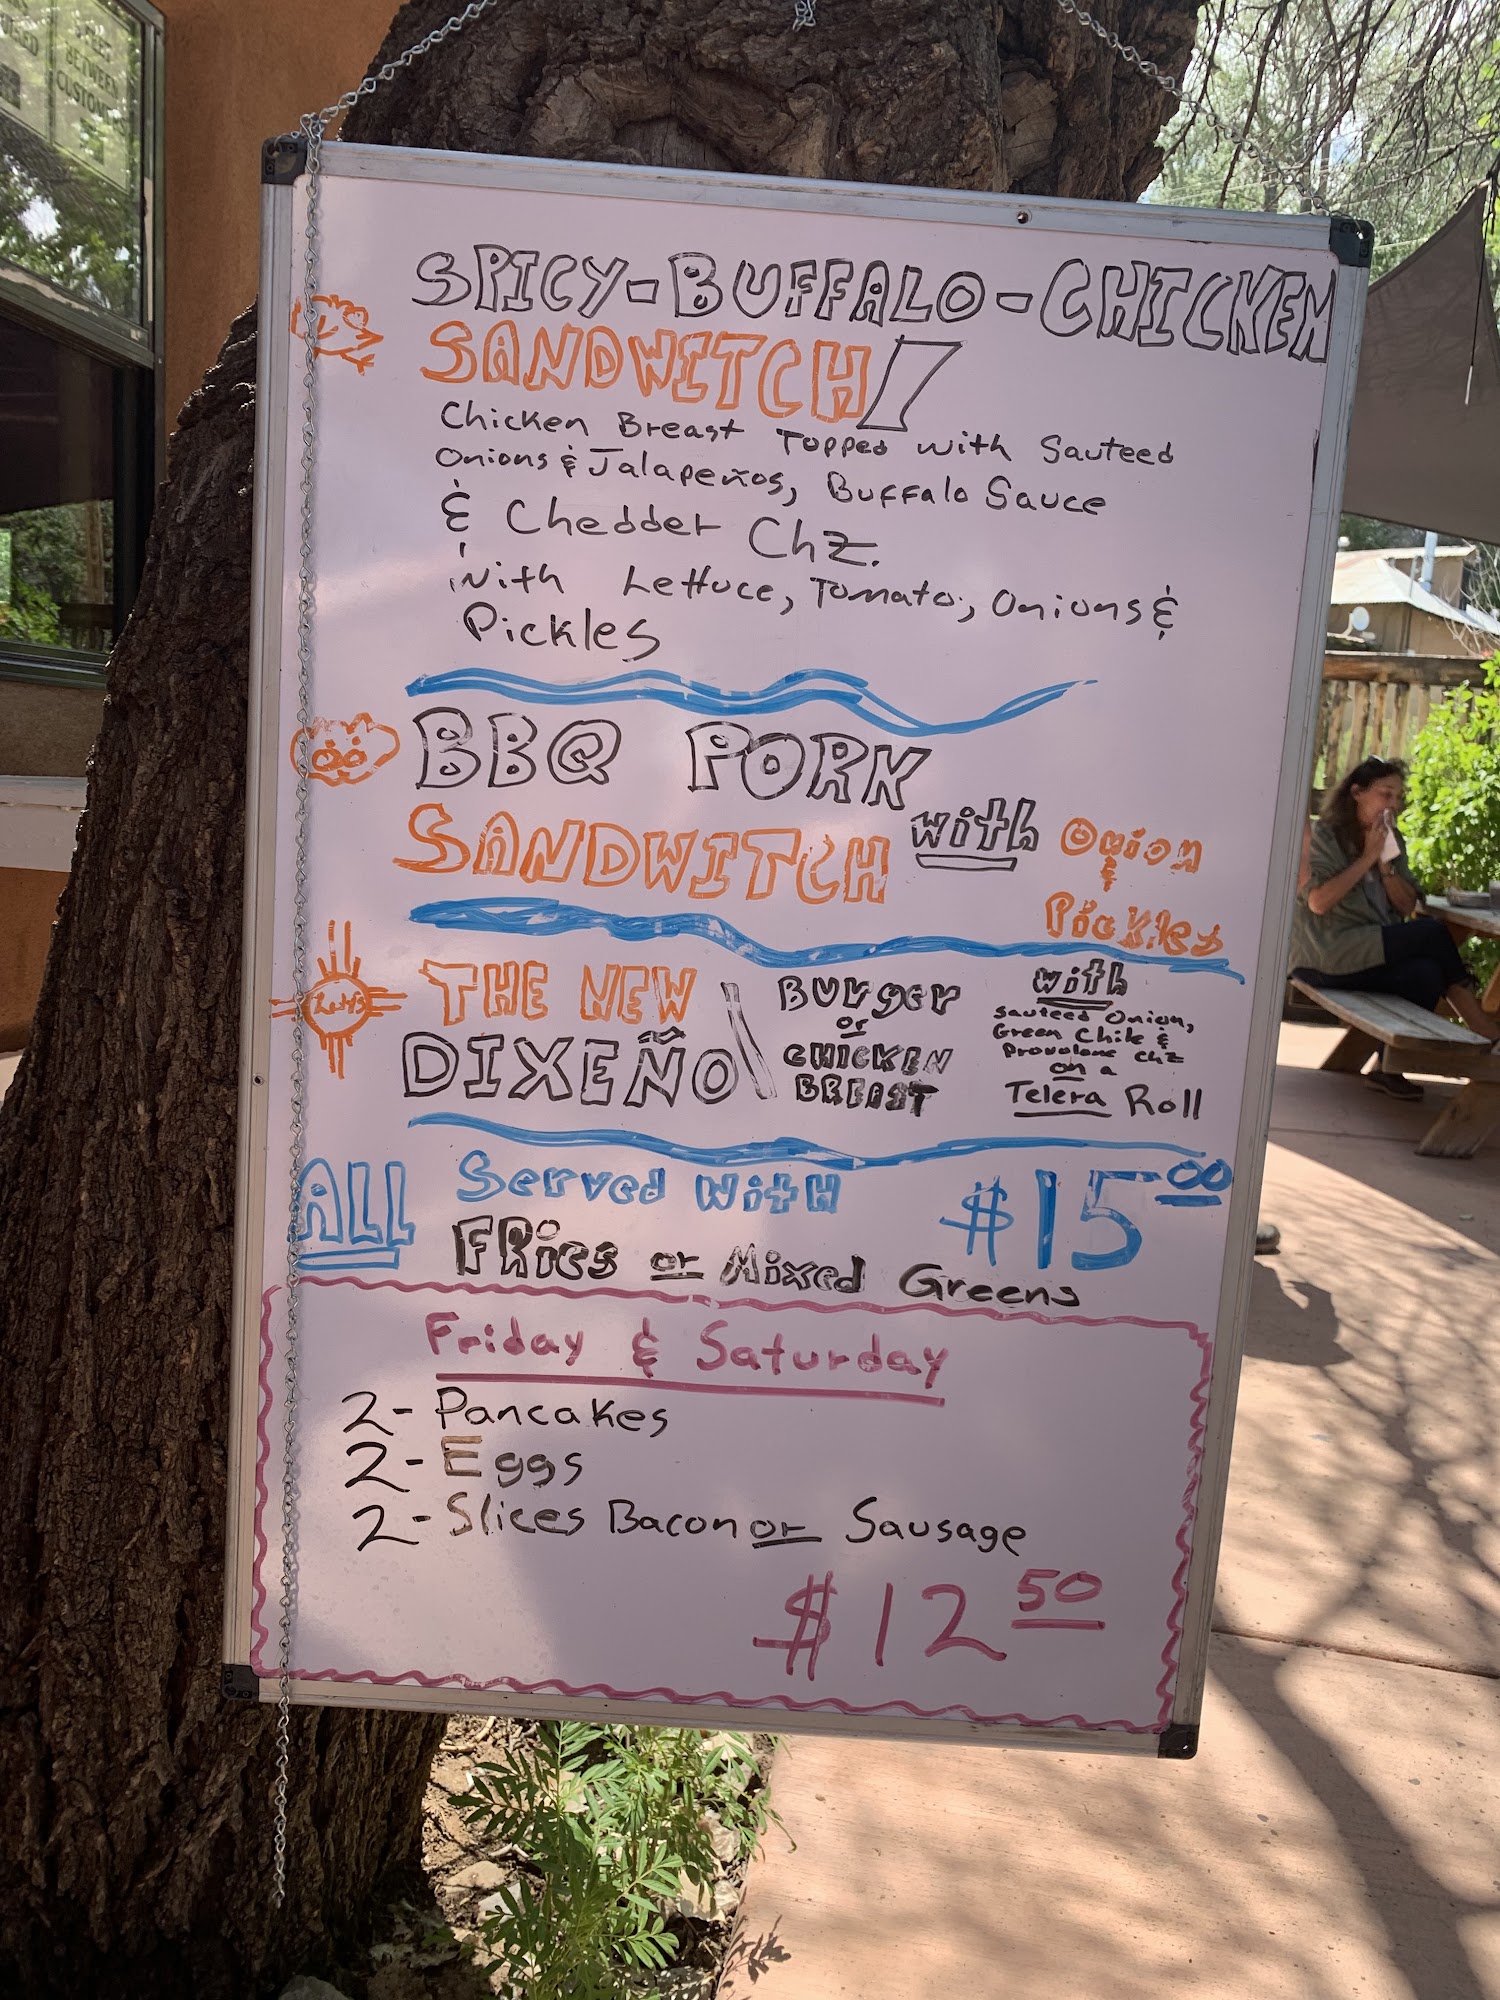 BETWEEN
CUSTOME
SPICY-BUFFALO-CHICKEN
SANDWITCH/
Chicken Breast Topped with Sauteed
Onions & Jalapeños, Buffalo Sauce
& Chedder Chz.
with Lettuce, Tomato, Onions &
Pickles
BBQ PORK
SANDWITCH with Onion
&
Pickles
THE NEW
DIXEÑO \
BURGER
or
CHICKEN
BREAST
with
Sauteed Onion,
Green Chile &
Provolone Chz
on a
Telera Roll
ALL Served With $15.00
FRies or Mixed Greens
Friday & Saturday
2- Pancakes
2- Eggs
2- Slices Bacon or Sausage
$12 50